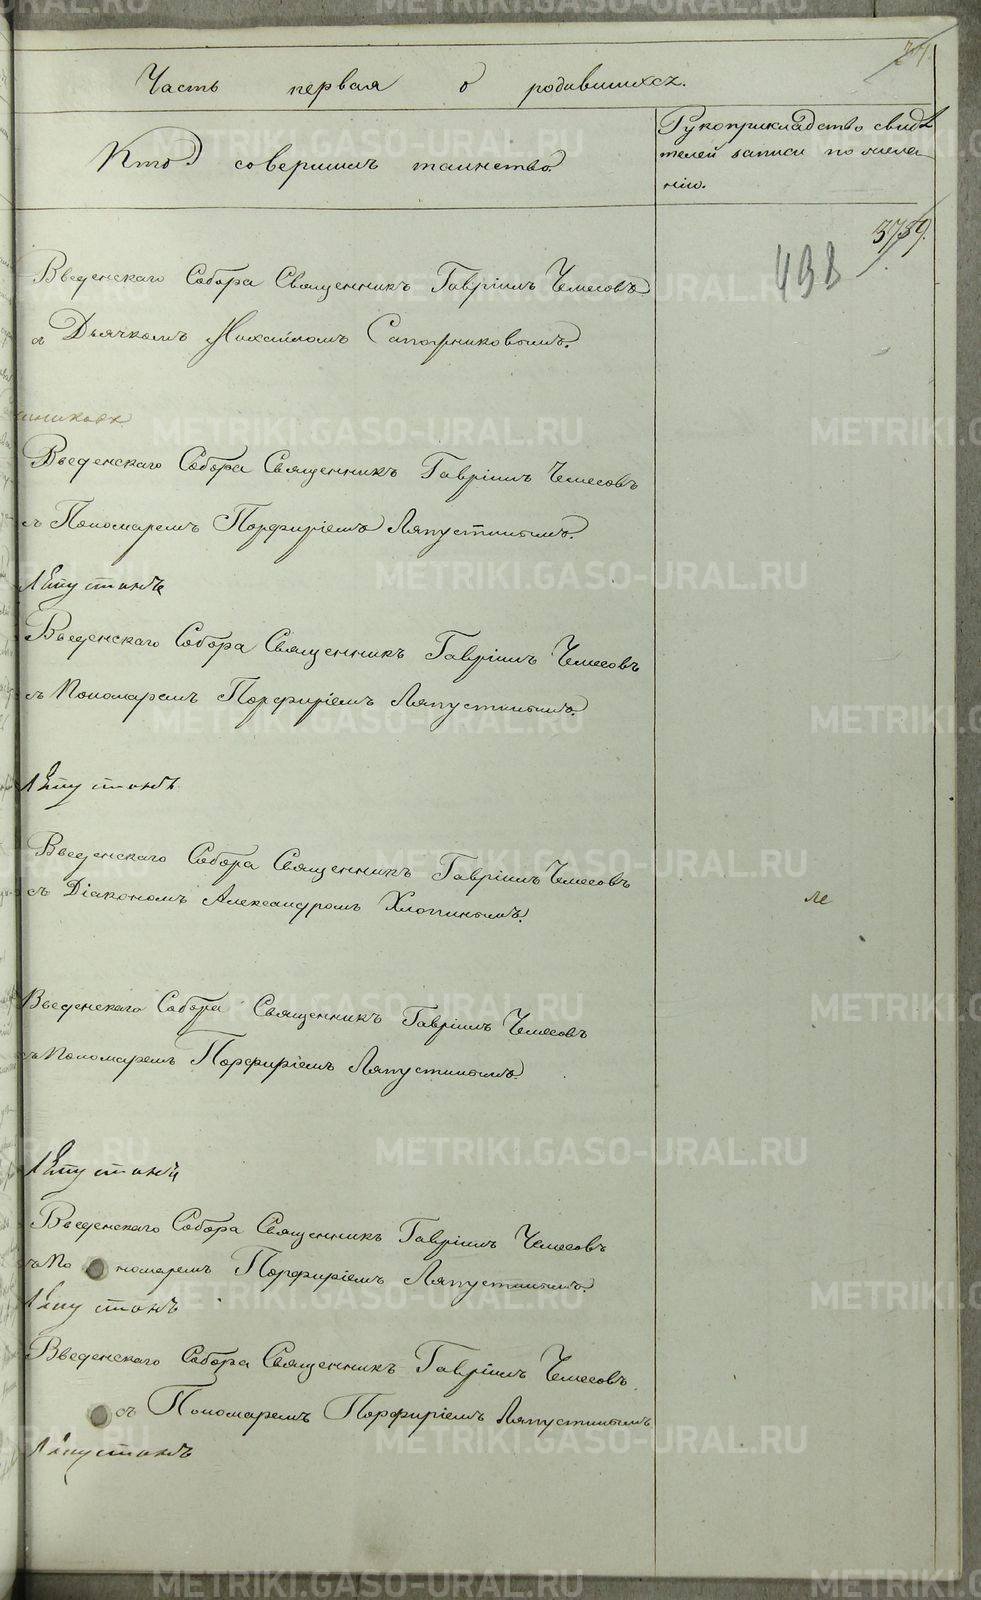 Часть первая о родившихся.
Кто совершилъ таинство.
Рукоприкладство свидѣ
телей записи по жела
нію.
498
Введенскаго Собора Священникъ Гавріилъ Чемесовъ
съ Дьячкомъ Михайломъ Сапожниковымъ.
Введенскаго Собора Священникъ Гавріилъ Чемесовъ
съ Пономаремъ Порфиріемъ Ляпустинымъ.
Введенскаго Собора Священникъ Гавріилъ Чемесовъ
съ Пономаремъ Порфиріемъ Ляпустинымъ.
Введенскаго Собора Священникъ Гавріилъ Чемесовъ
съ Діакономъ Александромъ Хлопинымъ.
Введенскаго Собора Священникъ Гавріилъ Чемесовъ
съ Пономаремъ Порфиріемъ Ляпустинымъ.
Введенскаго Собора Священникъ Гавріилъ Чемесовъ
съ Пономаремъ Порфиріемъ Ляпустинымъ.
Введенскаго Собора Священникъ Гавріилъ Чемесовъ
съ Пономаремъ Порфиріемъ Ляпустинымъ
METRIKI.GASO-URAL.RU